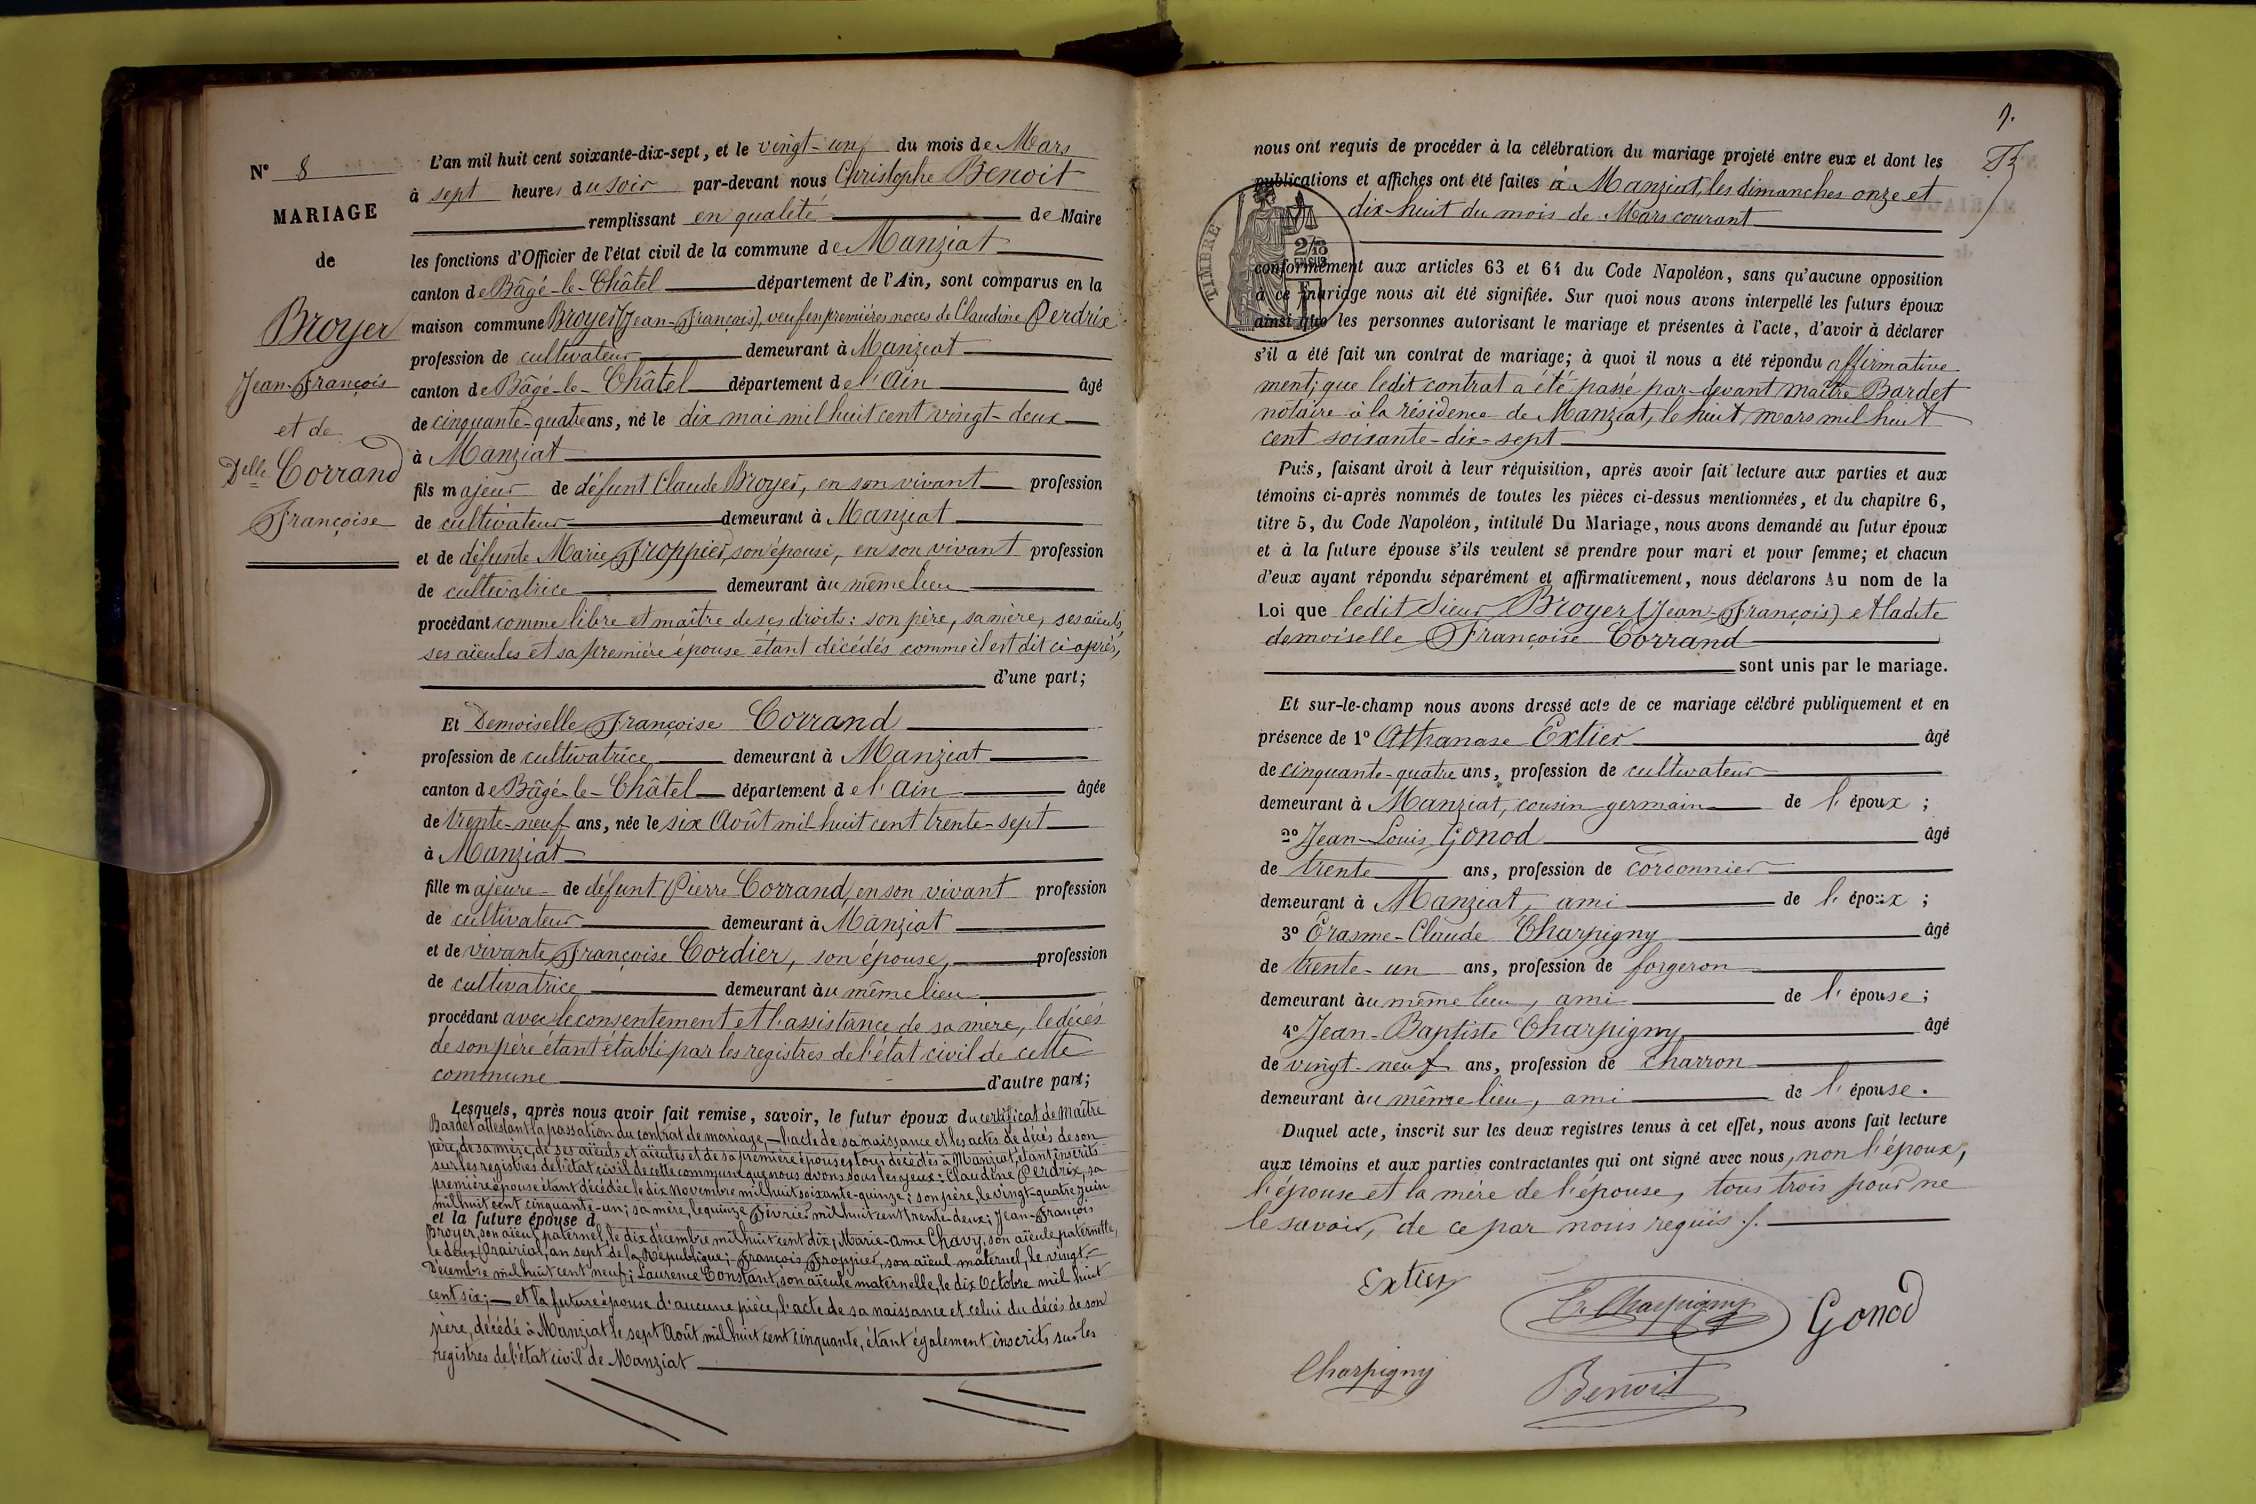 N° 8
MARIAGE
de
Broyer
Jean-François
et de
Delle Corrand
Françoise
L'an mil huit cent soixante-dix-sept, et le vingt-un, du mois de Mars
à sept heures du soir par-devant nous Christophe Benoit
remplissant en qualité de Maire
les fonctions d'Officier de l'état civil de la commune de Manziat
canton de Bâgé-le-Châtel département de l'Ain, sont comparus en la
maison commune Broyer (Jean-François), veuf en premières noces de Claudine Perdrix
profession de cultivateur demeurant à Manziat
canton de Bâgé-le-Châtel département de l'Ain âgé
de cinquante-quatre ans, né le dix mai mil huit cent vingt-deux
à Manziat
fils majeur de défunt Claude Broyer, en son vivant profession
de cultivateur demeurant à Manziat
et de défunte Marie Froppier, son épouse, en son vivant profession
de cultivatrice demeurant au même lieu
procédant comme libre et maître de ses droits: son père, sa mère, ses aïeuls,
ses aïeules et sa première épouse étant décédés comme il est dit ci-après,
d'une part;
Et Demoiselle Françoise Corrand
profession de cultivatrice demeurant à Manziat
canton de Bâgé-le-Châtel département de l'Ain âgée
de trente-neuf ans, née le six Août mil huit cent trente-sept
à Manziat
fille majeure de défunt Pierre Corrand, en son vivant profession
de cultivateur demeurant à Manziat
et de vivante Françoise Cordier, son épouse, profession
de cultivatrice demeurant au même lieu
procédant avec le consentement et l'assistance de sa mère, le décès
de son père étant établi par les registres de l'état civil de cette
commune d'autre part;
Lesquels, après nous avoir fait remise, savoir, le futur époux du certificat de Maître
Bardet attestant la passation du contrat de mariage, — l'acte de sa naissance et les actes de décès de son
père, de sa mère, de ses aïeuls et aïeules et de sa première épouse, tous décédés à Manziat, étant inscrits
sur les registres de l'état civil de cette commune que nous avons sous les yeux: Claudine Perdrix, sa
première épouse étant décédée le dix Novembre mil huit soixante-quinze; son père, le vingt-quatre juin
mil huit cent cinquante-un; sa mère, le quinze Février mil huit cent trente-deux; Jean-François
et la future épouse d
Broyer, son aïeul paternel, le dix décembre mil huit cent dix; Marie-Anne Chavy, son aïeule paternelle,
le deux Prairial, an sept de la République; François Froppier, son aïeul maternel, le vingt-
Décembre mil huit cent neuf; Laurence Constant, son aïeule maternelle, le dix Octobre mil huit
cent six; — et la future épouse d'aucune pièce, l'acte de sa naissance et celui du décès de son
père, décédé à Manziat le sept Août mil huit cent cinquante, étant également inscrits sur les
registres de l'état civil de Manziat
9.
nous ont requis de procéder à la célébration du mariage projeté entre eux et dont les
publications et affiches ont été faites à Manziat, les dimanches onze et
dix-huit du mois de Mars courant
TIMBRE
conformément aux articles 63 et 64 du Code Napoléon, sans qu'aucune opposition
à ce mariage nous ait été signifiée. Sur quoi nous avons interpellé les futurs époux
ainsi que les personnes autorisant le mariage et présentes à l'acte, d'avoir à déclarer
s'il a été fait un contrat de mariage; à quoi il nous a été répondu affirmative
ment; que ledit contrat a été passé par-devant maître Bardet
notaire à la résidence de Manziat, le huit mars mil huit
cent soixante-dix-sept
Puis, faisant droit à leur réquisition, après avoir fait lecture aux parties et aux
témoins ci-après nommés de toutes les pièces ci-dessus mentionnées, et du chapitre 6,
titre 5, du Code Napoléon, intitulé Du Mariage, nous avons demandé au futur époux
et à la future épouse s'ils veulent se prendre pour mari et pour femme; et chacun
d'eux ayant répondu séparément et affirmativement, nous déclarons Au nom de la
Loi que ledit Sieur Broyer (Jean-François) et ladite
demoiselle Françoise Corrand
sont unis par le mariage.
Et sur-le-champ nous avons dressé acte de ce mariage célébré publiquement et en
présence de 1° Athanase Extier âgé
de cinquante-quatre ans, profession de cultivateur
demeurant à Manziat, cousin germain de l'époux;
2° Jean-Louis Gonod âgé
de trente ans, profession de cordonnier
demeurant à Manziat, ami de l'époux;
3° Erasme-Claude Charpigny âgé
de trente-un ans, profession de forgeron
demeurant au même lieu, ami de l'épouse;
4° Jean-Baptiste Charpigny âgé
de vingt-neuf ans, profession de charron
demeurant au même lieu, ami de l'épouse.
Duquel acte, inscrit sur les deux registres tenus à cet effet, nous avons fait lecture
aux témoins et aux parties contractantes qui ont signé avec nous, non l'époux,
l'épouse et la mère de l'épouse, tous trois pour ne
le savoir, de ce par nous requis ./.
Extier
Er Charpigny
Gonod
Charpigny
Benoit